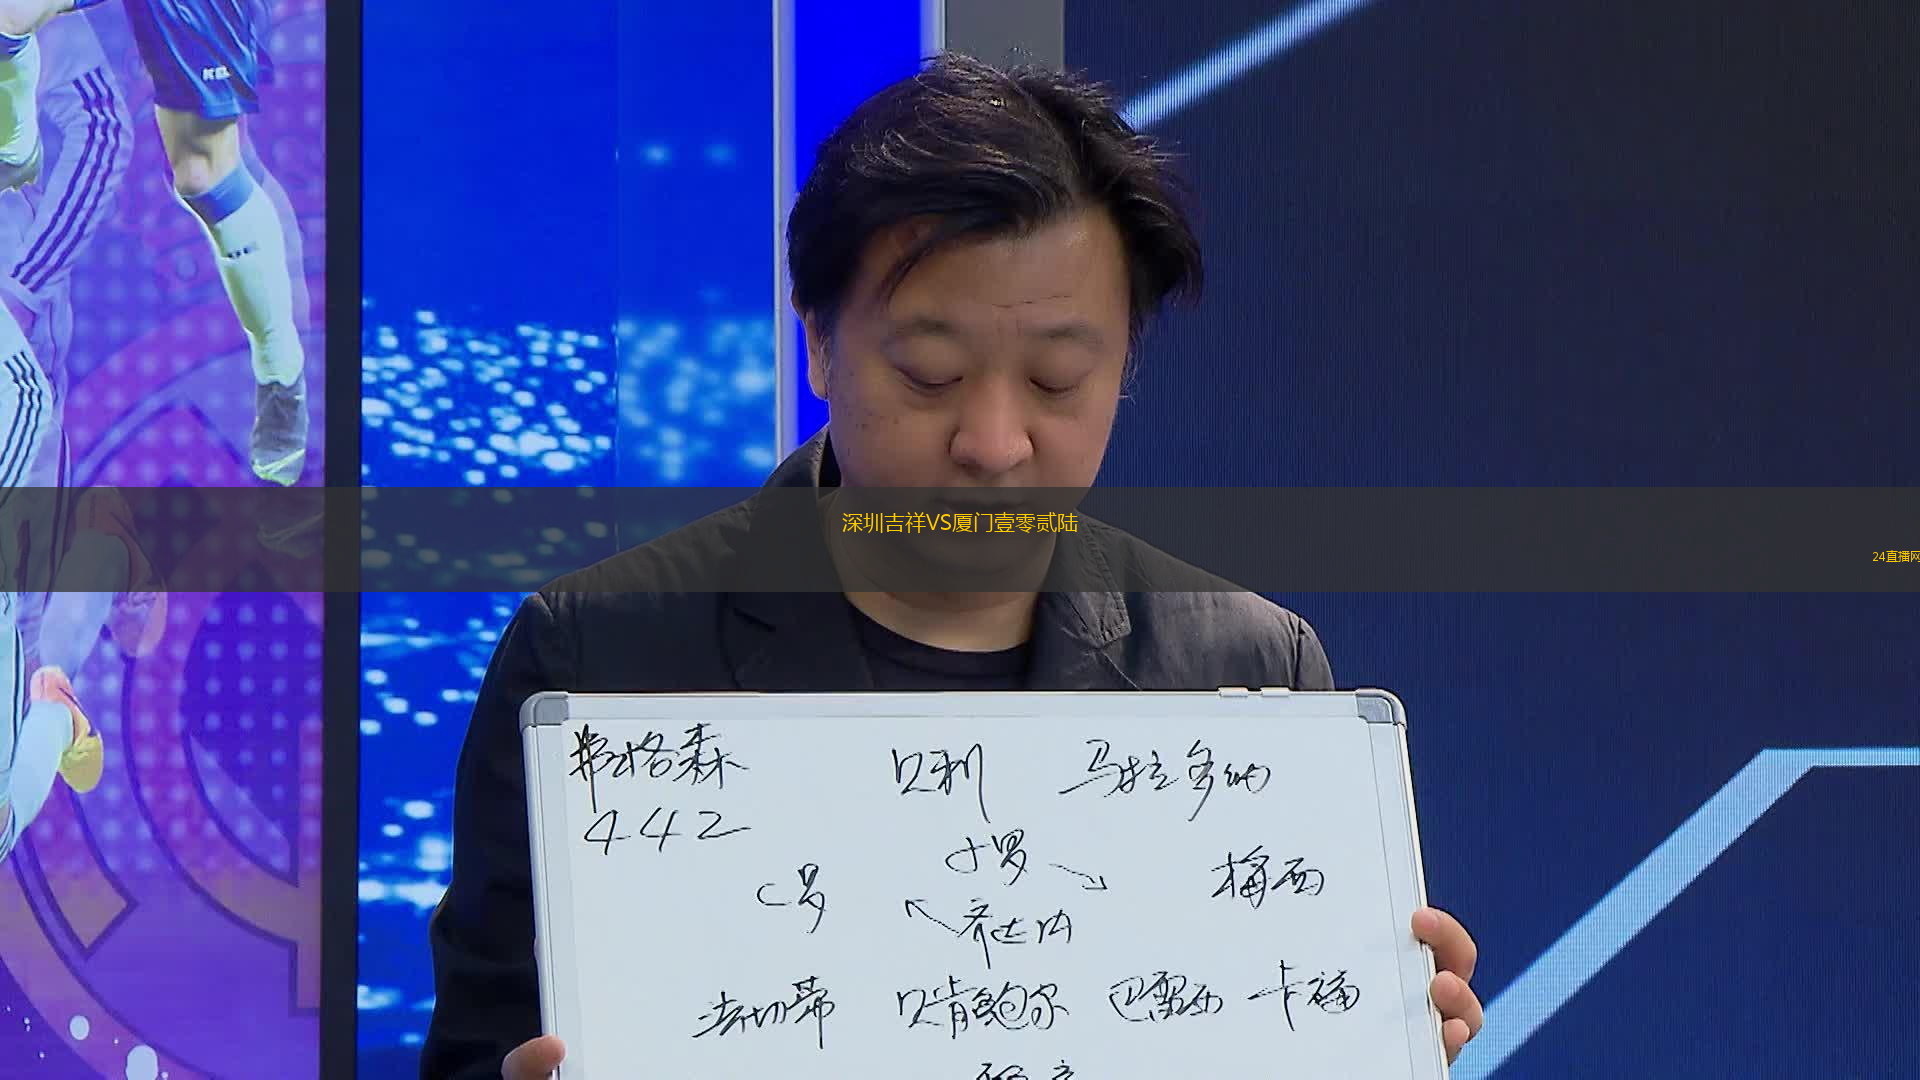 KEL
深圳吉祥VS厦门壹零贰陆
24直播网
弗格森 贝利 马拉多纳
442
小罗
C罗 梅西
齐达内
法切蒂 贝肯鲍尔 巴雷西 卡福